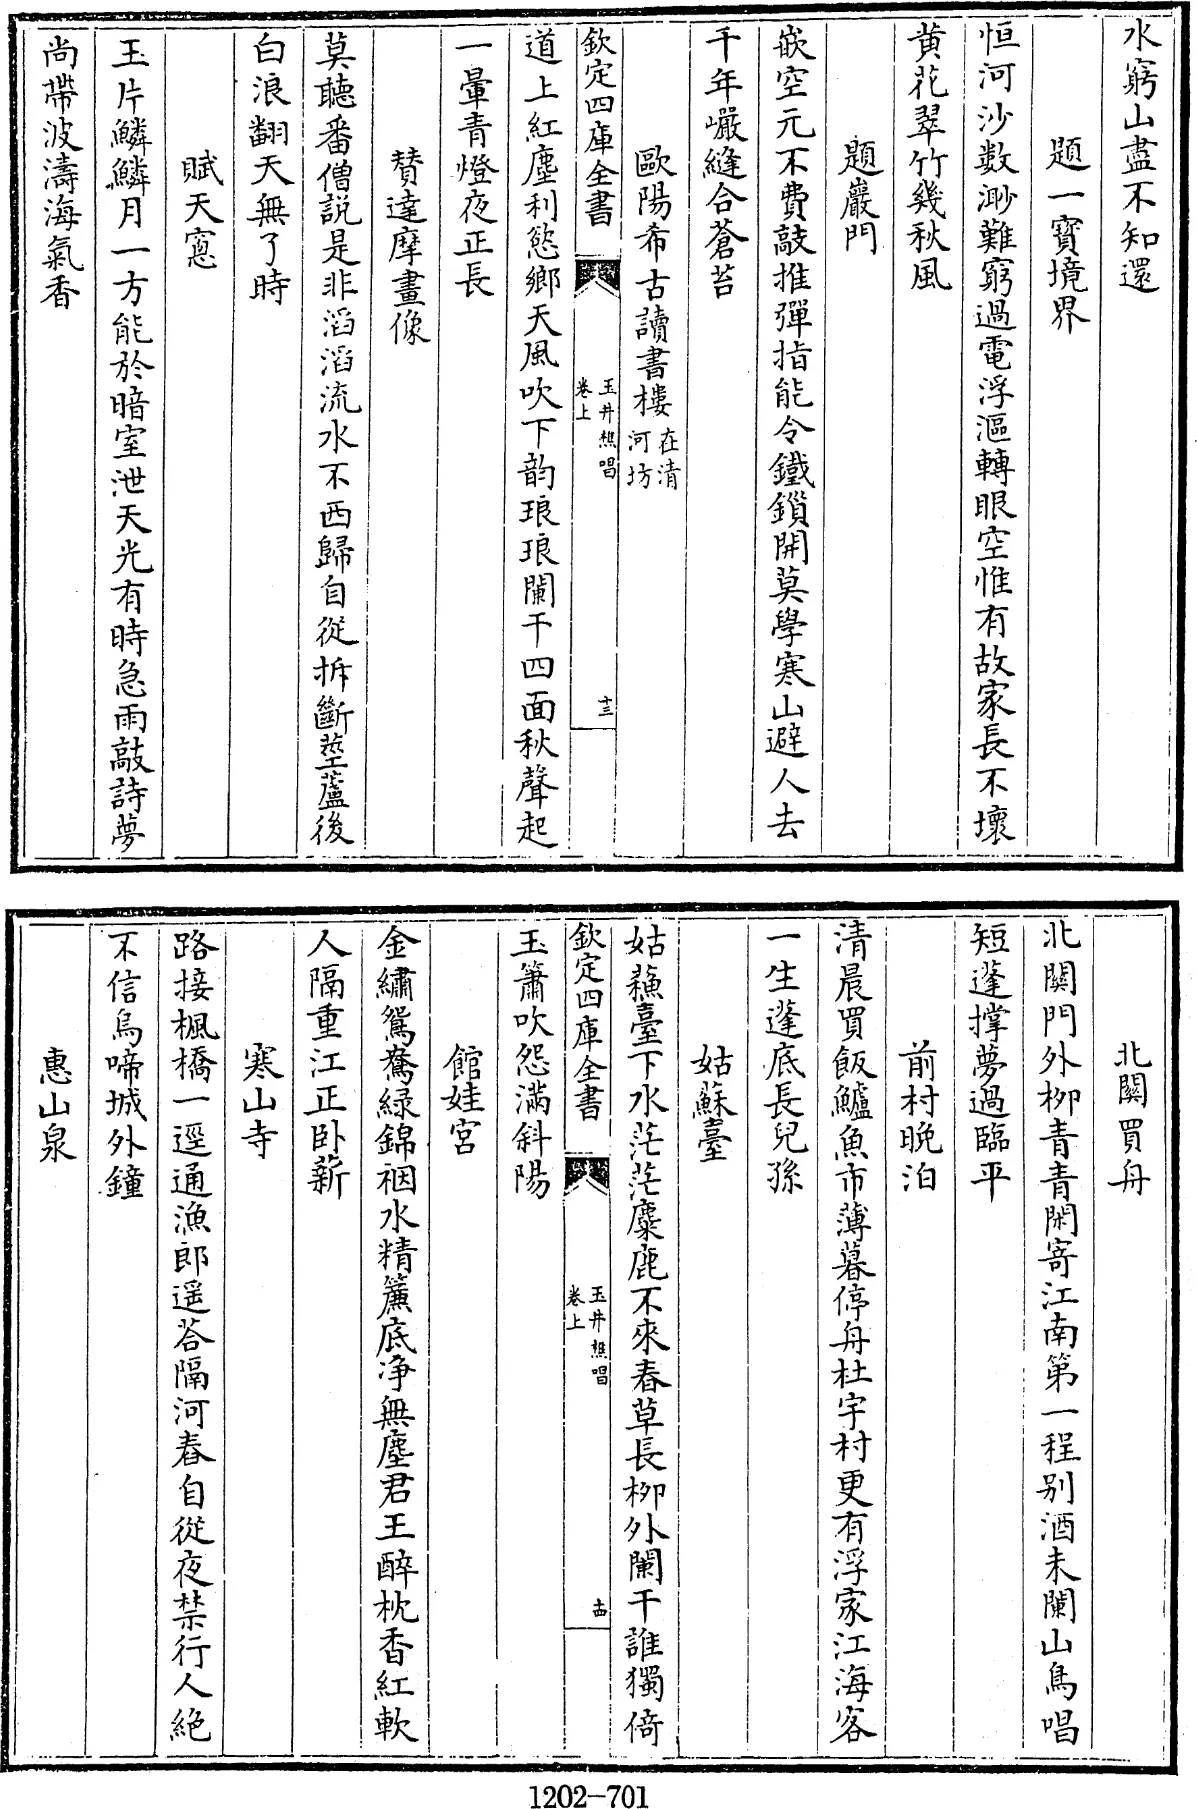 水窮山盡不知還
題一寳境界
恒河沙數渺難窮過電浮漚轉眼空惟有故家長不壞
黄花翠竹幾秋風
題巖門
嵌空元不費敲推彈指能令鐵鎻開莫學寒山避人去
千年巗縫合蒼苔
歐陽希古讀書樓在清河坊
欽定四庫全書
玉井樵唱
卷上
十三
道上紅塵利慾鄉天風吹下韵琅琅闌干四面秋聲起
一暈青燈夜正長
賛達摩畫像
莫聽番僧説是非滔滔流水不西歸自從拆斷莖蘆後
白浪翻天無了時
賦天窻
玉片鱗鱗月一方能於暗室泄天光有時急雨敲詩夢
尚帶波濤海氣香
北闗買舟
北闗門外栁青青閑寄江南第一程别酒未闌山鳥唱
短蓬撑夢過臨平
前村晩泊
清晨買飯鱸魚市薄暮停舟杜宇村更有浮家江海客
一生蓬底長兒孫
姑蘇臺
姑蘓臺下水茫茫麋鹿不來春草長栁外闌干誰獨倚
欽定四庫全書
玉井樵唱
卷上
十四
玉簫吹怨滿斜陽
館娃宫
金繡鴛鴦緑錦裀水精簾底净無塵君王醉枕香紅軟
人隔重江正卧薪
寒山寺
路接楓橋一逕通漁郎遥荅隔河舂自從夜禁行人絶
不信烏啼城外鐘
惠山泉
1202-701